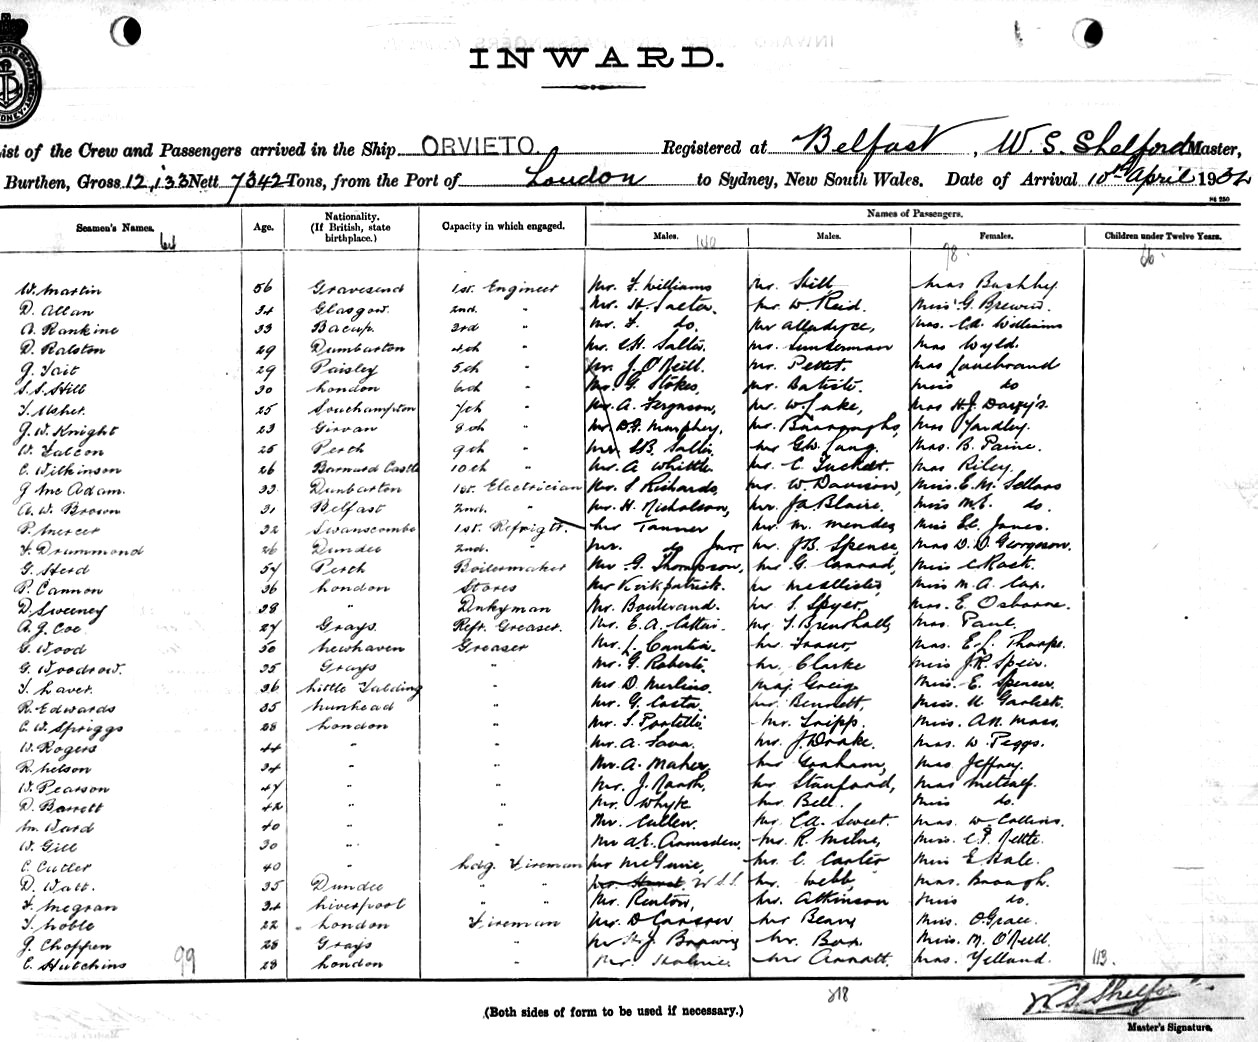 INWARD.
List of the Crew and Passengers arrived in the Ship ORVIETO. Registered at Belfast, W. S. Shelford Master,
Burthen, Gross 12,133 Nett 7342 Tons, from the Port of London to Sydney, New South Wales. Date of Arrival 10th April
Seamen's Names. Age. Nationality. (If British, state birthplace.) Capacity in which engaged. Names of Passengers.
Males. Males. Females. Children under Twelve Years.
W. Martin 56 Gravesend 1st. Engineer Mr. F. Williams Mr. Still Mrs Bushby
D. Allan 34 Glasgow. 2nd. " Mr. H. Salter. Mr. W. Reid. Miss G. Brewin
A. Rankine 33 Bacup. 3rd " Mr. F. do. Mr Mrs. Williams
D. Ralston 29 Dumbarton 4th " Mr. Mr. Mrs Wyld.
G. Tait 29 Paisley 5th " Mr. J. O'Neill. Mr. Pettet. Mrs Lovebrand
S. S. Hill 30 London 6th " Mr. G. Stokes, Mr. Batiste. Miss do
T. Usher. 25 Southampton 7th " Mr. A. Ferguson, Mr. W. Lake, Mrs H. J.
J. W. Knight 23 Girvan 8th " Mr. Murphy, Mr. Burroughs, Mrs Yardley.
W. Falcon 25 Perth 9th " Mr. Mr G. W. Mrs. B. Paine.
C. Wilkinson 26 Barnard Castle 10th " Mr. A Whittle Mr. C. Tuckett. Mrs Riley.
J. McAdam. 33 Dunbarton 1st. Electrician Mr. S Richards, Mr. W. Davison, Miss. E. M. Sellars
A. W. Brown 31 Belfast 2nd. " Mr. H. Nicholson, Mr. Blaire. Miss M. E. do.
P. Mercer 32 Swanscombe 1st. Refrigtr. Mr Tanner Mr. M. Mendes Miss Jones.
F. Drummond 26 Dundee 2nd. " Mr. do Junr Mr. J. B. Spense, Mrs D. D. Georgeson.
G. Herd 54 Perth Boilermaker Mr G. Thompson, Mr. G. Conrad, Miss
P. Cannon 36 London Stores Mr Kirkpatrick. Mr McAllister, Miss M. A. Cox.
D. Sweeney 38 " Dnkyman Mr. Boulevand. Mr. S. Spyer. Mrs. E. Osborne.
A. J. Coe 27 Grays. Refr. Greaser. Mr. E. A. Mr. Mrs. Paul.
G. Wood 50 Newhaven Greaser Mr. L. Mr. Fraser Mrs. E. L. Thorpe.
G. Woodrow. 35 Grays " Mr. G. Roberts. Mr. Clarke Miss J. R. Speir.
T. Laver. 36 Little Yalding " Mr D. Merlino Maj. Greig Miss. E. Spencer.
R. Edwards 35 Nunhead " Mr. G. Costa. Mr. Bennett, Miss. Garlick.
C. W. Spriggs 28 London " Mr. S. Portelli. Mr. Tripp. Miss. A. M. Moss.
W. Rogers 44 " " Mr. A. Sava. Mr. J. Drake. Mrs. W. Peggs.
R. Nelson 34 " " Mr. A. Maher. Mr Graham, Mrs Jeffrey.
W. Pearson 47 " " Mr. J. Mr Stanford, Mrs Metcalf.
D. Barrett 42 " " Mr. Whyte Mr. Bell. Miss do.
Wm. Ward 40 " " Mr. Cullen. Mr. Sweet. Mrs. W Collins.
W. Gill 30 " " Mr A. E. Mr. R. Milne, Miss.
C. Cutler 40 " Ldg. Fireman Mr McGuire, Mr. C. Carter Miss E Hale.
D. Watt. 35 Dundee " " W.S.S. Mr. Webb, Mrs. Borough.
F. McGran 34 Liverpool " " Mr. Renton, Mr. Atkinson Miss do.
T. Noble 22 London Fireman Mr. D Mr Bean, Miss. O'Grace.
G. Choppen 28 Grays " Mr H. J. Mr. Box. Miss. M. O'Neill.
C. Hutchins 99 28 London " Mr. Mr Arnott. Mrs. Yelland. 113.
318
W. S. Shelford
(Both sides of form to be used if necessary.)
Master's Signature.